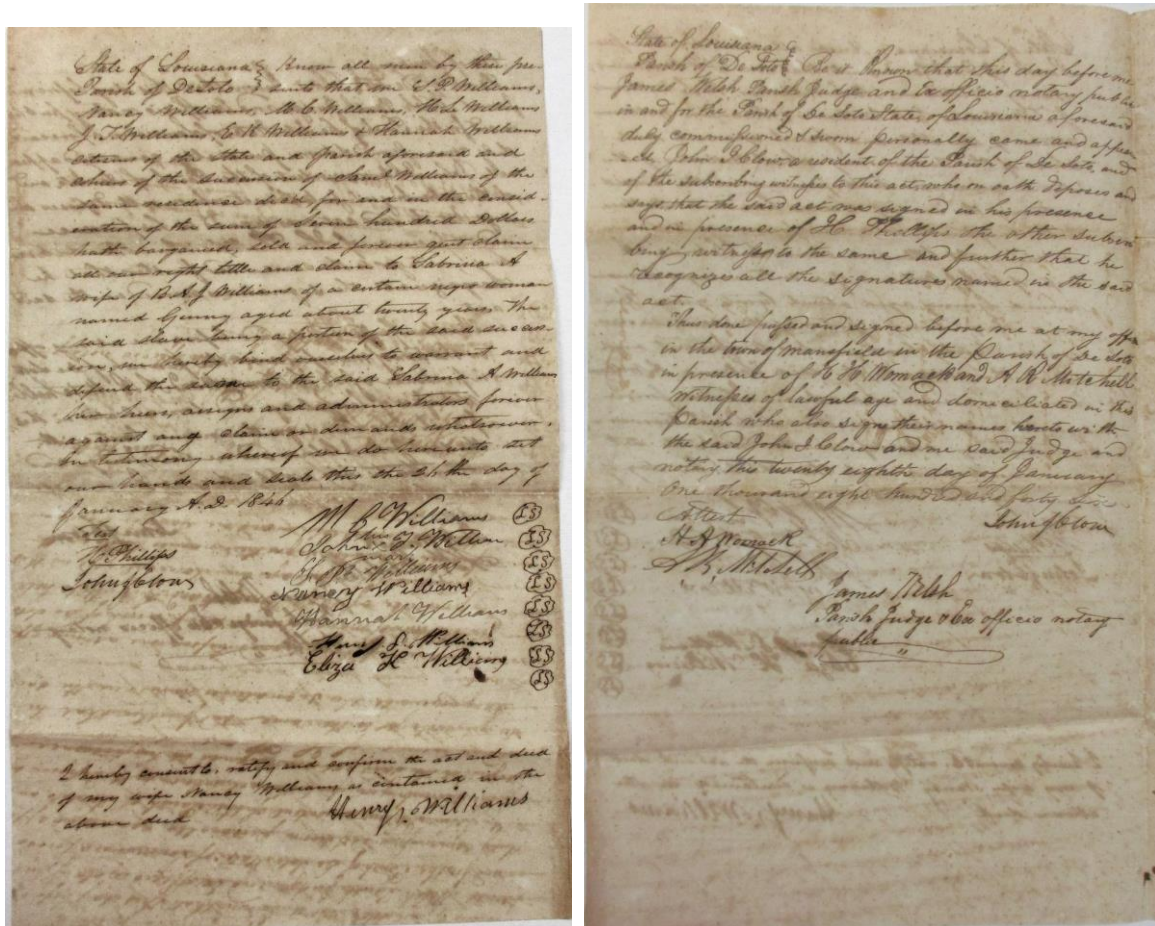 State of Louisiana Know all men by these pre-
Parish of DeSoto sents that we S. P. Williams,
Nancy Williams, M. C. Williams, Hul. Williams
J. T. Williams, E. H. Williams & Hannah Williams
citizens of the State and Parish aforesaid and
of the succession of Saml Williams of the
same residence decd for and in the consid-
eration of the sum of Seven hundred Dollars
hath bargained, sold and forever quit claim
all our right title and claim to Sabrina A
wife of B. A. J. Williams of a certain negro woman
named aged about twenty years. The
said slave being a portion of the said success-
ion, we hereby bind ourselves to warrant and
defend the same to the said Sabrina A Williams
her heirs, assigns and administrators forever
against any claim or demands whatsoever.
In testimony whereof we do hereunto set
our hands and seals this the 24th the day of
January A.D. 1846
Test
H. Phillips
John J Clow
M C Williams LS
John T. Williams LS
S P Williams LS
Nancy Williams LS
Hannah Williams LS
Williams LS
Eliza H Williams LS
LS
I hereby consent to, ratify and confirm the act and deed
of my wife Nancy Williams as contained in the
above deed
Henry Williams
State of Louisiana
Parish of De Soto Be it Known that this day before me
James Welsh Parish Judge and Ex officio notary public
in and for the Parish of De Soto State of Louisiana aforesaid
duly commissioned & sworn personally came and appea-
ed John J Clow a resident of the Parish of De Soto, and
of the subscribing witnesses to this act, who on oath deposes and
says that the said act was signed in his presence
and in presence of H Phillips the other subscri
bing witness to the same and further that he
recognizes all the signatures named in the said
act.
Thus done passed and signed before me at my office
in the town of Mansfield in the Parish of De Soto
in presence of H H Womack and A R Mitchell
witnesses of lawful age and domeciliated in this
Parish who also sign their names hereto with
the said John J Clow and me said Judge and
notary this twenty eighth day of January
one thousand eight hundred and forty six
Attest
John J Clow
H H Womack
A R. Mitchell
James Welsh
Parish Judge & Ex officio notary
public